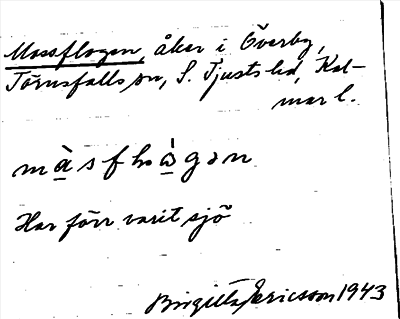 Mossflagen, åker i Överby,
Törnsfalls sn, S. Tjusts hd, Kal-
mar l.
Har förr varit sjö
Birgitta Ericsson 1943